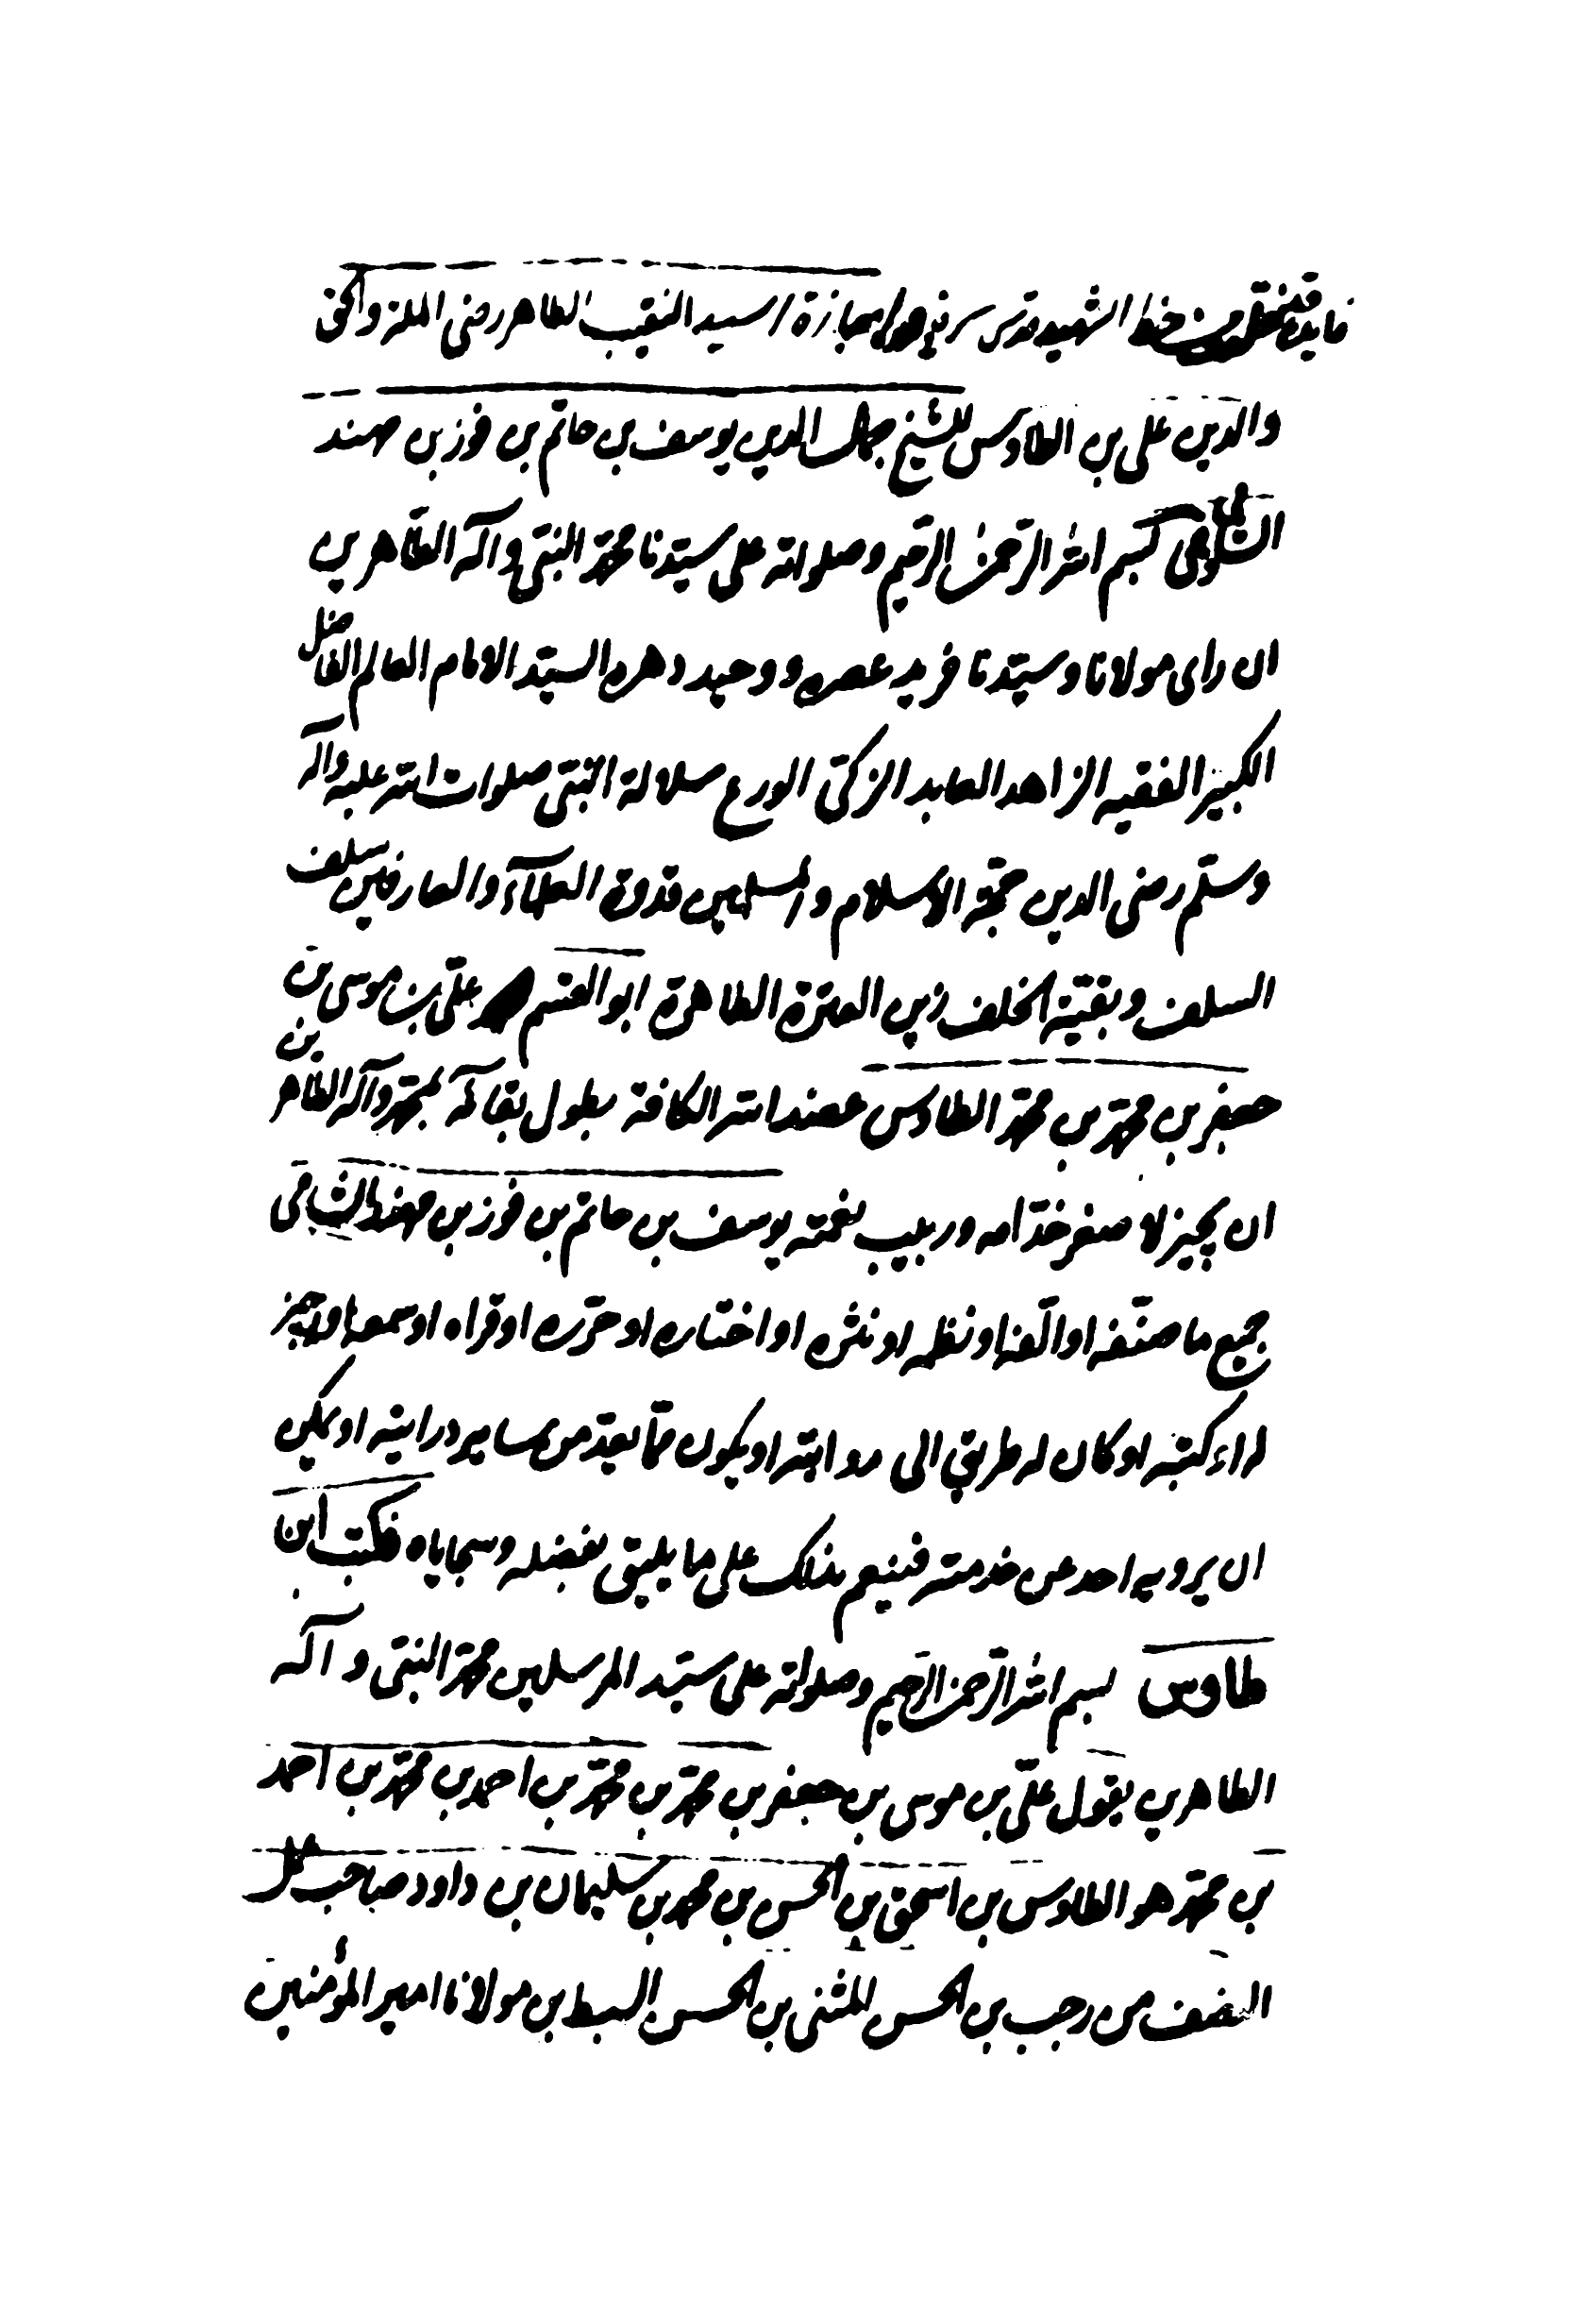 فايدة نقلت من خط الشهيد قدس سره اجازة السيد النقيب الطاهر رضى الملة والحق
والدين على بن الطاوس للشيخ جمال الدين يوسف بن حاتم بن فوز بن مهند
الشامى بسم الله الرحمن الرحيم وصلوته على سيّدنا محمّد النبىّ وآله الطّاهرين
ان راى مولانا وسيّدنا فريد عصره ووحيد دهره السيّد الامام العالم الفاضل
الكبير الفقيه الزاهد العابد الزكىّ الورع سلالة النبىّ صلوات الله عليه وآله
وسلّم رضى الدين حجّة الاسلام والمسلمين قدوة العلمآء والعارفين سلف
السلف وبقيّة الخلف زين العترة الطاهرة ابو القسم علىّ بن موسى بن
جعفر بن محمّد بن محمّد الطاوس عضد الله الكافة بطول بقائه بمحمّد وآله الطّاهرين
ان يجيز لاصغر خدّامه وربيب نعمته يوسف بن حاتم بن فوز بن مهند الشامى
جميع ما صنّفه او الّفه او نظمه او نثره او اختاره او حرّره او قراه او سمعه او اجيز
له او كتبه او كان له طريق الى روايته او يكون ممّا يعدّ من ساير درايته او يمكن
ان يرويه احد عن خدمته فينعم بذلك على ما يليق بفضله وسجاياه فكتب ابن
طاوس بسم الله الرّحمن الرّحيم وصلوته على سيّد المرسلين محمّد النبىّ وآله
الطاهرين يقول علىّ بن موسى بن جعفر بن محمّد بن محمّد بن احمد بن محمّد بن احمد
بن محمّد هو الطاوس بن اسحق بن الحسن بن محمد بن سليمان بن داود صاحب عمل
النصف من رجب بن الحسن المثنى بن الحسن السبط بن مولانا امير المؤمنين